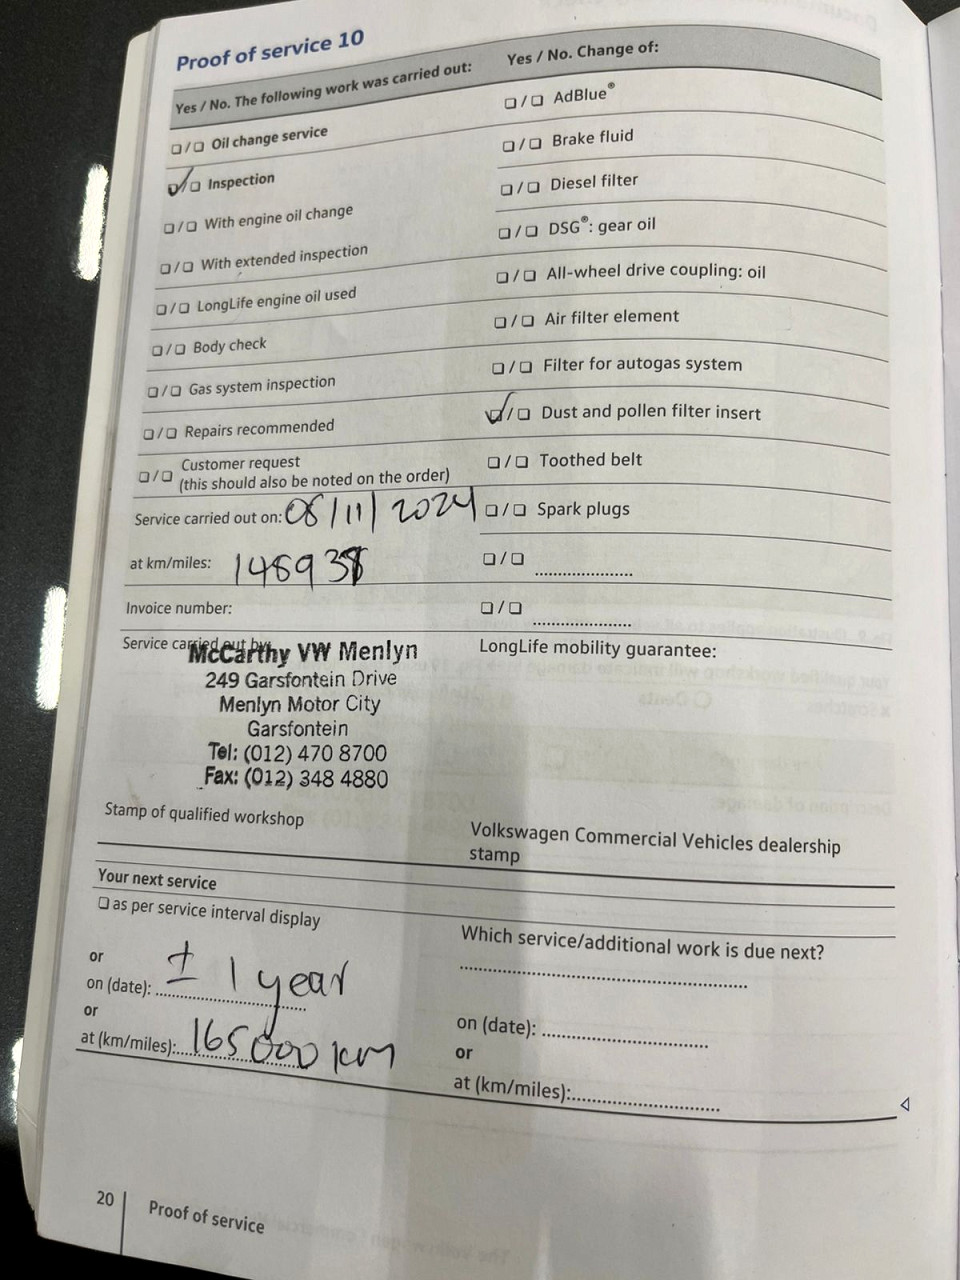 Proof of service 10
Yes / No. The following work was carried out:
☐/☐ Oil change service
☑/☐ Inspection
☐/☐ With engine oil change
☐/☐ With extended inspection
☐/☐ LongLife engine oil used
☐/☐ Body check
☐/☐ Gas system inspection
☐/☐ Repairs recommended
☐/☐ Customer request
(this should also be noted on the order)
Service carried out on: 08/11/2024
at km/miles: 148938
Invoice number:
Service carried out by:
McCarthy VW Menlyn
249 Garsfontein Drive
Menlyn Motor City
Garsfontein
Tel: (012) 470 8700
Fax: (012) 348 4880
Stamp of qualified workshop
Yes / No. Change of:
☐/☐ AdBlue®
☐/☐ Brake fluid
☐/☐ Diesel filter
☐/☐ DSG®: gear oil
☐/☐ All-wheel drive coupling: oil
☐/☐ Air filter element
☐/☐ Filter for autogas system
☑/☐ Dust and pollen filter insert
☐/☐ Toothed belt
☐/☐ Spark plugs
☐/☐ ....................
☐/☐ ....................
LongLife mobility guarantee:
Volkswagen Commercial Vehicles dealership
stamp
Your next service
☐ as per service interval display
or
on (date): ± 1 year
or
at (km/miles): 165000 km
Which service/additional work is due next?
..................................................
on (date): .............................
or
at (km/miles):.............................
20
Proof of service